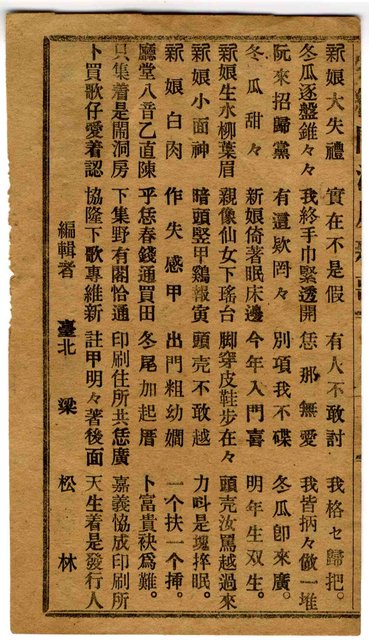 新娘大失禮 實在不是假 有人不敢討 我格セ歸把。
冬瓜逐盤錐々々 我終手巾緊透開 恁那無愛 我皆抦々做一堆
阮來招歸黨 有這欵罔々 別項我不碟 冬瓜卽來廣。
冬瓜甜々 新娘倚著眠床邊 今年入門喜 明年生双生。
新娘生水柳葉眉 親像仙女下瑤台 脚穿皮鞋步在々 頭壳汝罵越過來
新娘小面神 暗頭竪甲鷄報寅 頭壳不敢越 力時是塊捽眠。
新娘白肉 作失感甲 出門粗幼嫺 一个扶一个揷。
廳堂八音乙直陳 乎恁春錢通買田 冬尾加起厝 卜富貴袂為難。
只集着是鬧洞房 下集野有閣恰通 印刷住所共恁廣 嘉義協成印刷所
卜買歌仔愛着認 協隆下歌專維新 註甲明々著後面 天生着是發行人
編輯者 臺北 梁松林